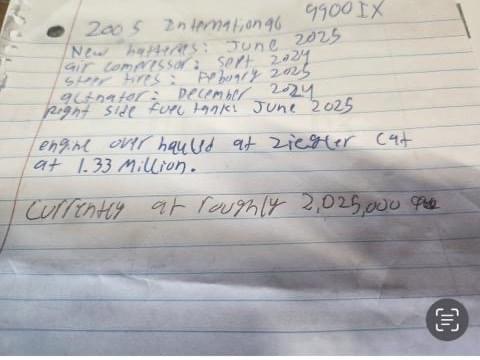 2005 International 9900IX
New batteries: June 2025
air compressor: Sept 2024
steer tires: Febuary 2025
actnator: December 2024
Right side fuel tank: June 2025
engine over hauled at Ziegler Cat
at 1.33 Million.
Currently at roughly 2,025,000